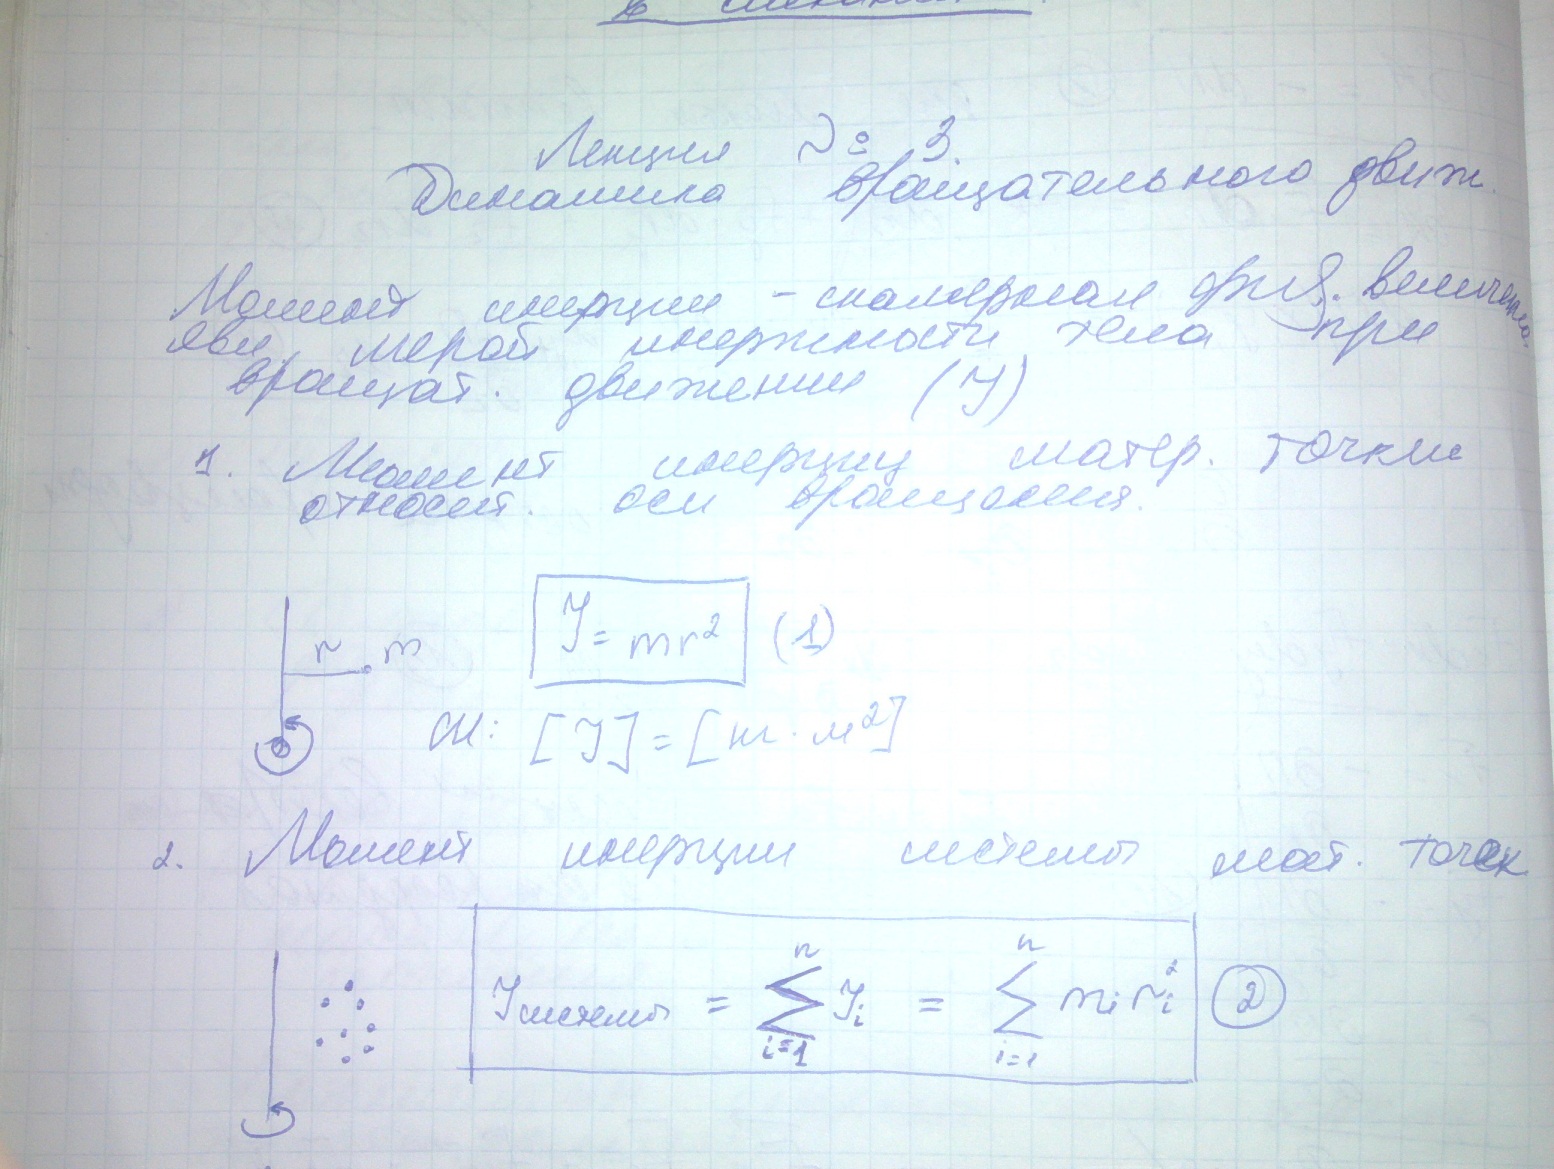 в механике.
Лекция № 3.
Динамика вращательного движ.
Момент инерции – скалярная физ. величина,
явл. мерой инертности тела при
вращат. движении (J)
1. Момент инерции матер. точки
относит. оси вращения.
r m
J = mr² (1)
СИ: [J] = [кг · м²]
2. Момент инерции системы мат. точек
n n
Jсистемы = ∑ Jᵢ = ∑ mᵢrᵢ² (2)
i=1 i=1